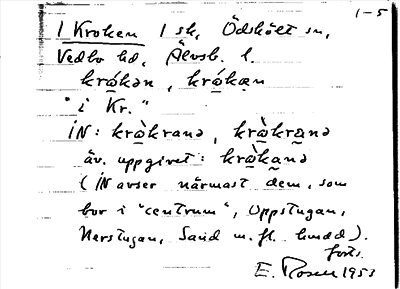 1-5
1 Kroken 1 sk, Ödskölt sn,
Vedbo hd, Älvsb. l.
krókən, krókən
"i Kr."
iN: kràkranə, kràkranə
äv. uppgivet: kràkanə
(iN avser närmast dem, som
bor i "centrum", Uppstugan,
Nerstugan, Sand m. fl. hmdd).
forts.
E. Rosen 1953